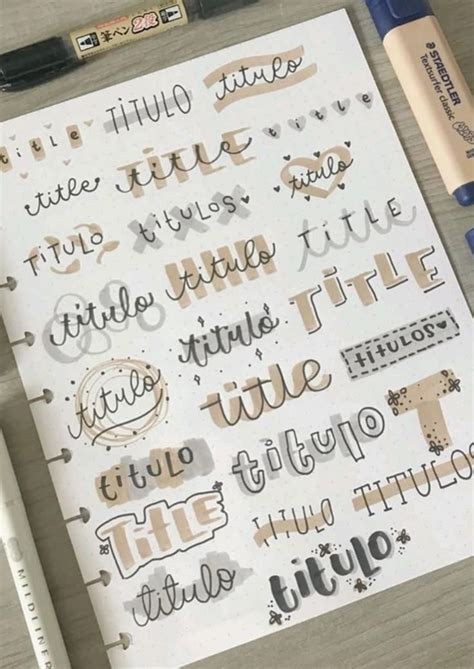 STAEDTLER
Textsurfer classic
title
TÍTULO
titulo
title
TITLE
title
title
titulo
TITULO
titulos
title
TITLE
titulo
titulo
TITLE
titulo
titulos
titulo
title
T
titulo
titulo
TITULOS
Title
TITULO
titulo
titulo
MILDLINER